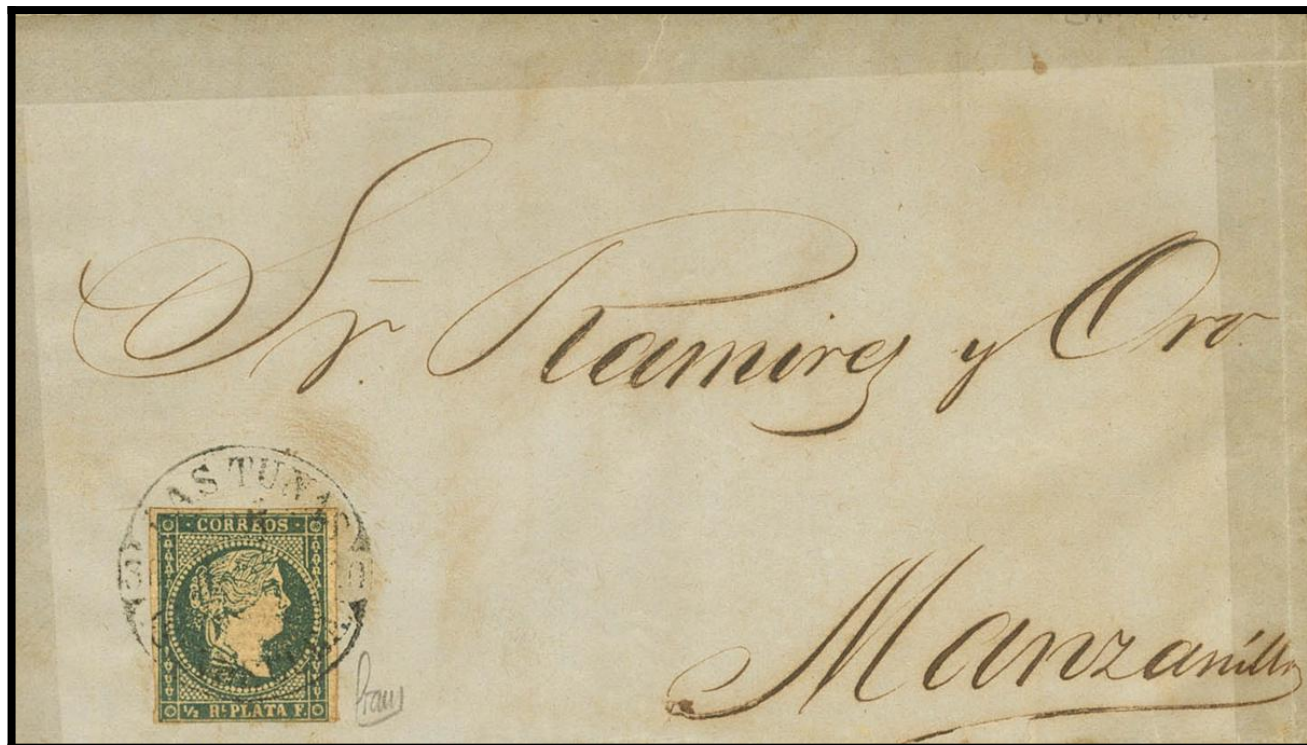 Sr. Ramirez y Oro
LAS TUNAS
CORREOS
½ Rl. PLATA F.
Manzanillo